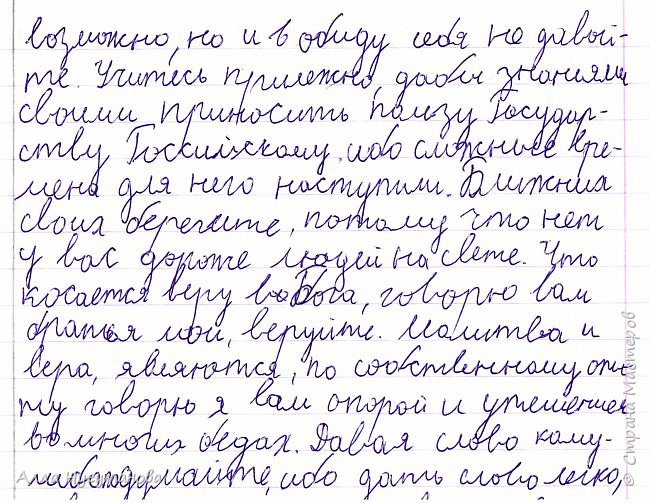 возможно, но и в обиду себя не давай-
те. Учитесь прилежно, дабы знаниями
своими приносить пользу Государ-
ству Российскому, ибо сложные вре-
мена для него наступили. Ближних
своих берегите, потому что нет
у вас дороже людей на свете. Что
косается веру во Бога, говорю вам
братья мои, веруйте. Молитва и
вера, являются, по собственному опы-
ту говорю я вам опорой и утешением
во многих бедах. Давая слово кому-
либо думайте, ибо дать слово легко,
© Страна Мастеров